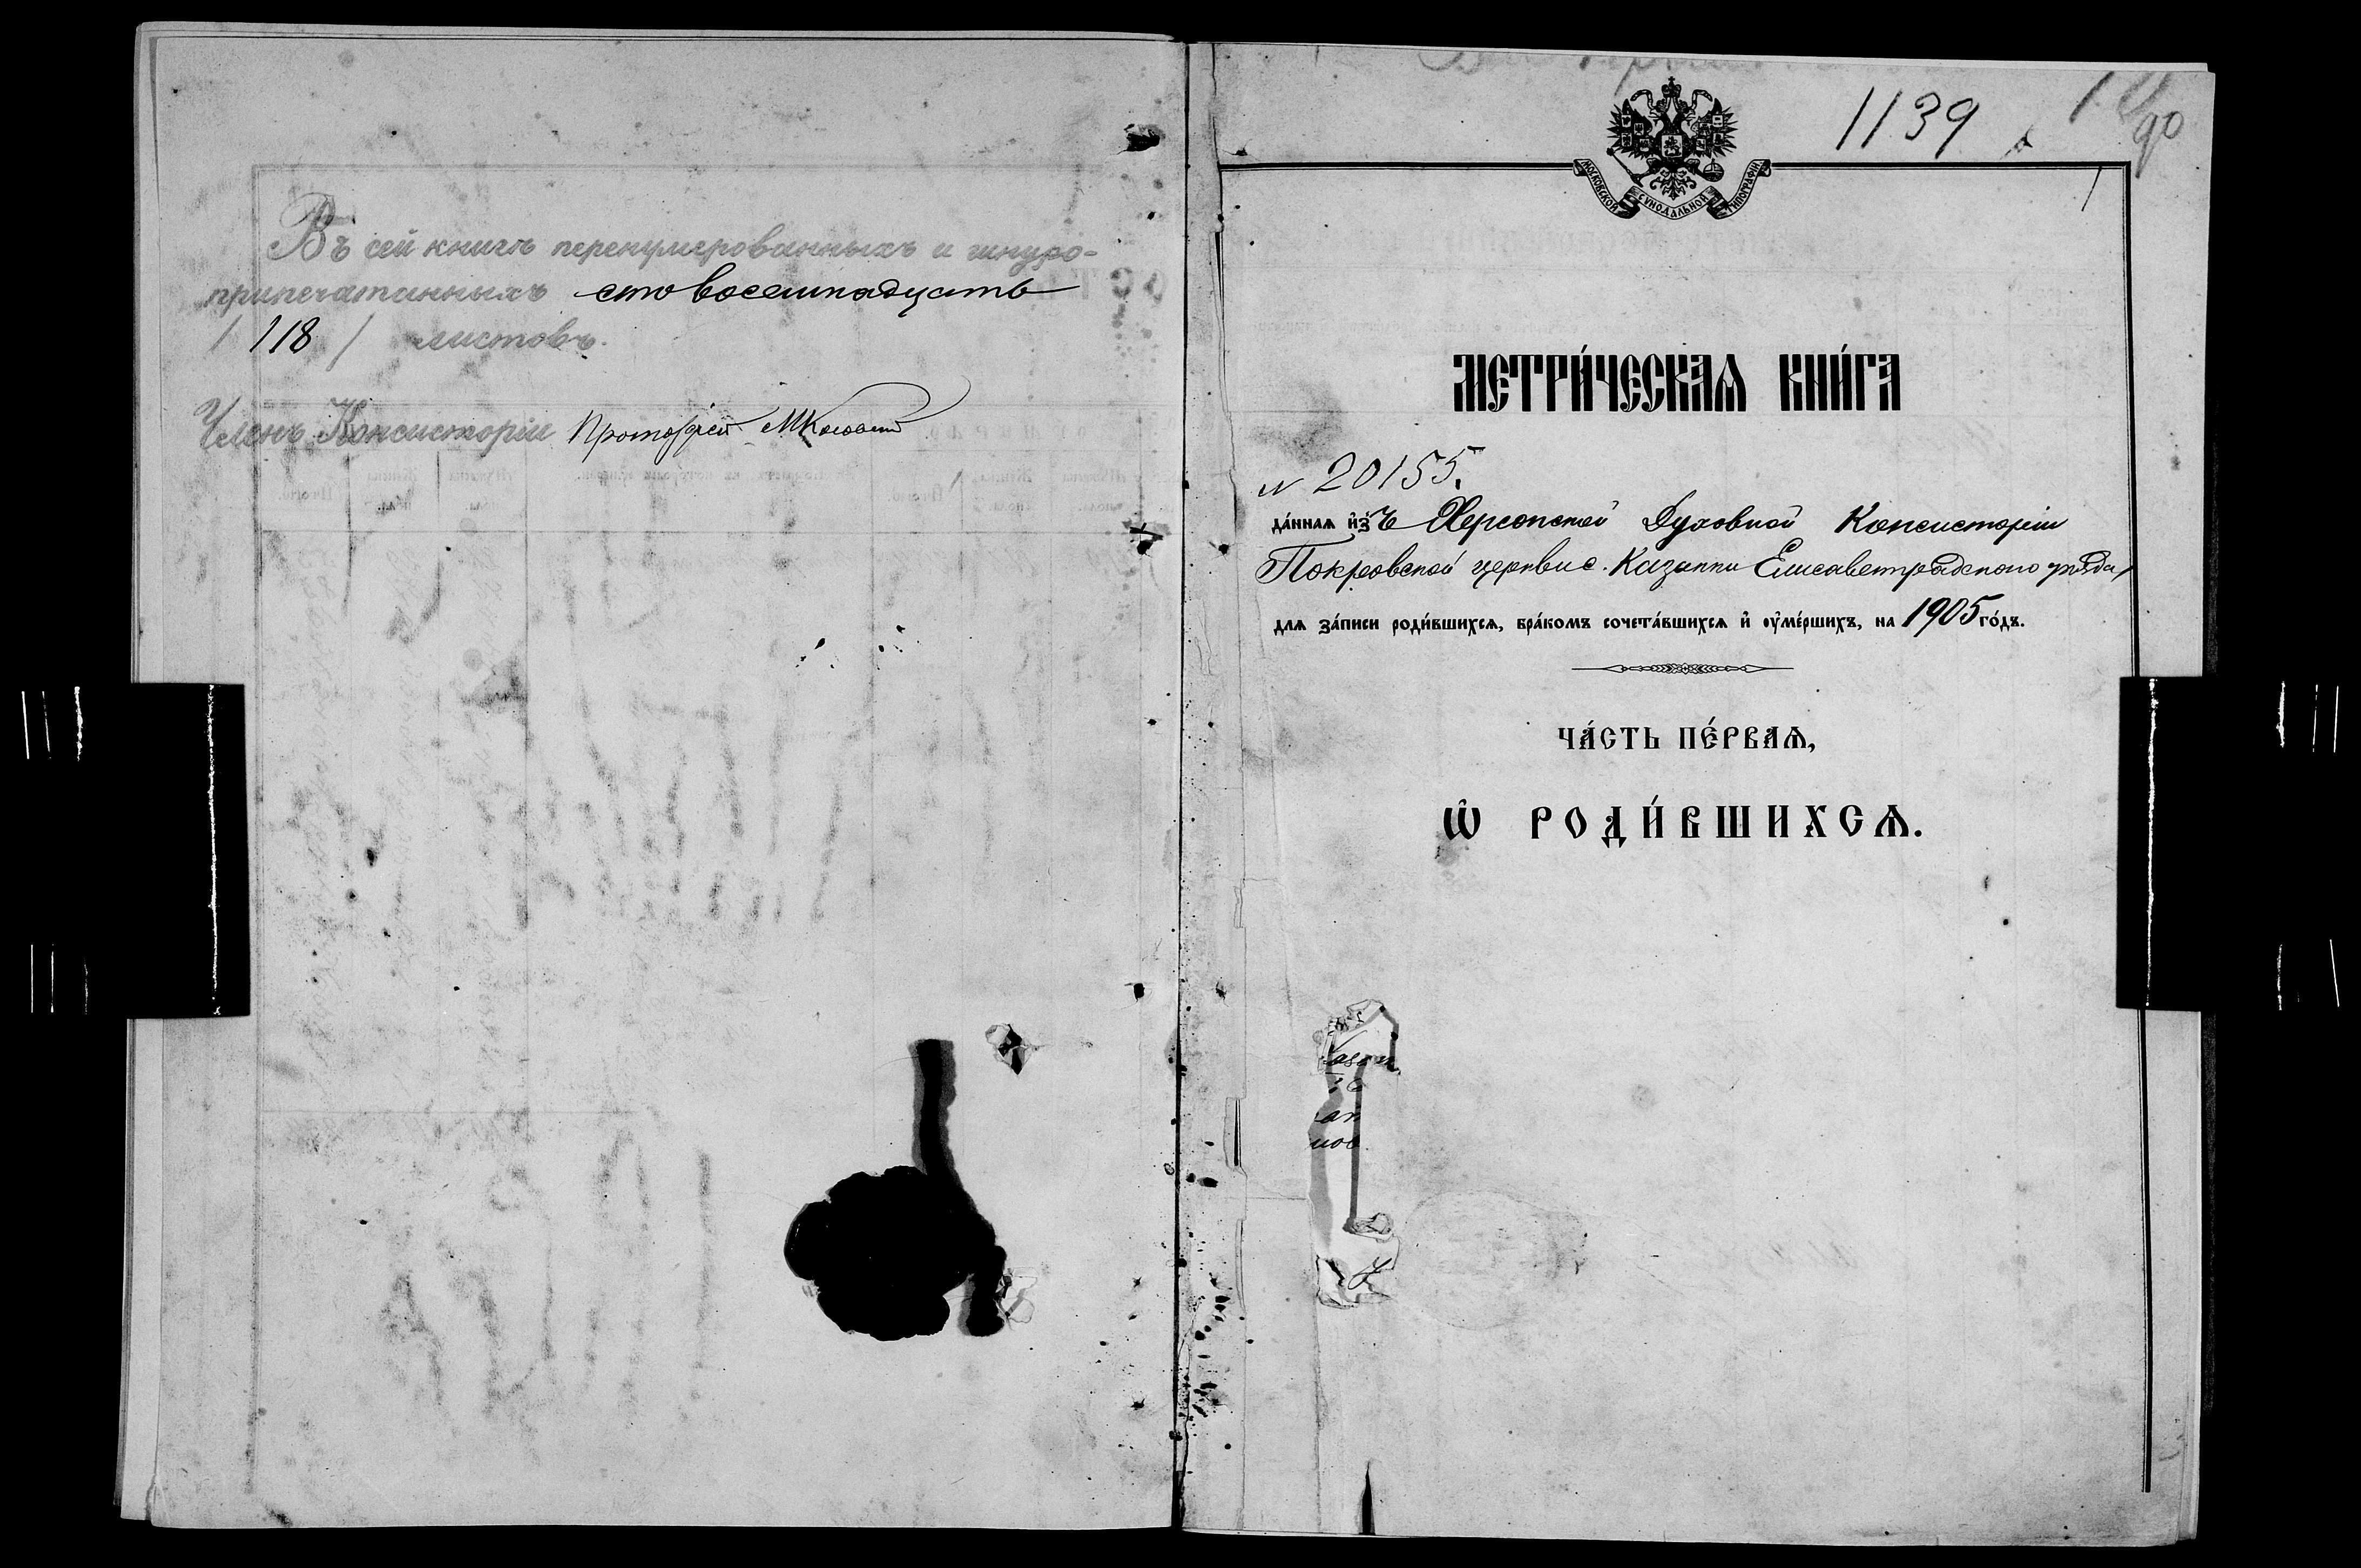 Въ сей книгѣ перенумерованныхъ и шнуро-
припечатанныхъ сто восемнадцать
/ 118 / листовъ.
Членъ Консисторіи Протоіерей
1139
МОСКОВСКОЙ СѴНОДАЛЬНОЙ ТИПОГРАФІИ
1
МЕТРИ́ЧЕСКАѦ КНИ́ГА
№ 20155.
да́ннаѧ и҆зъ Херсонской Духовной Консисторіи
Покровской церкви с. Казанки Елисаветградскаго уѣзда,
длѧ за́писи роди́вшихсѧ, бра́комъ сочета́вшихсѧ и҆ ѹ҆ме́ршихъ, на 1905 го́дъ.
ЧА́СТЬ ПЕ́РВАѦ,
Ѡ҆ РОДИ́ВШИХСѦ.